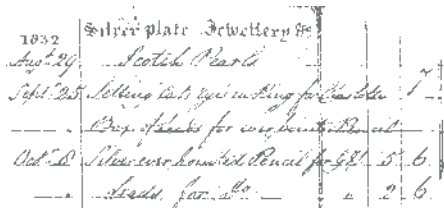 1832 Silver plate Jewellery &c
Augt 29 Scotch Pearls
Sept 25 Setting Cats eyes in Ring for Charlotte 7
Box of Leads for ever Pencil
Octr 8 Silver ever pointed Pencil for 5 6
Leads for Do 2 6